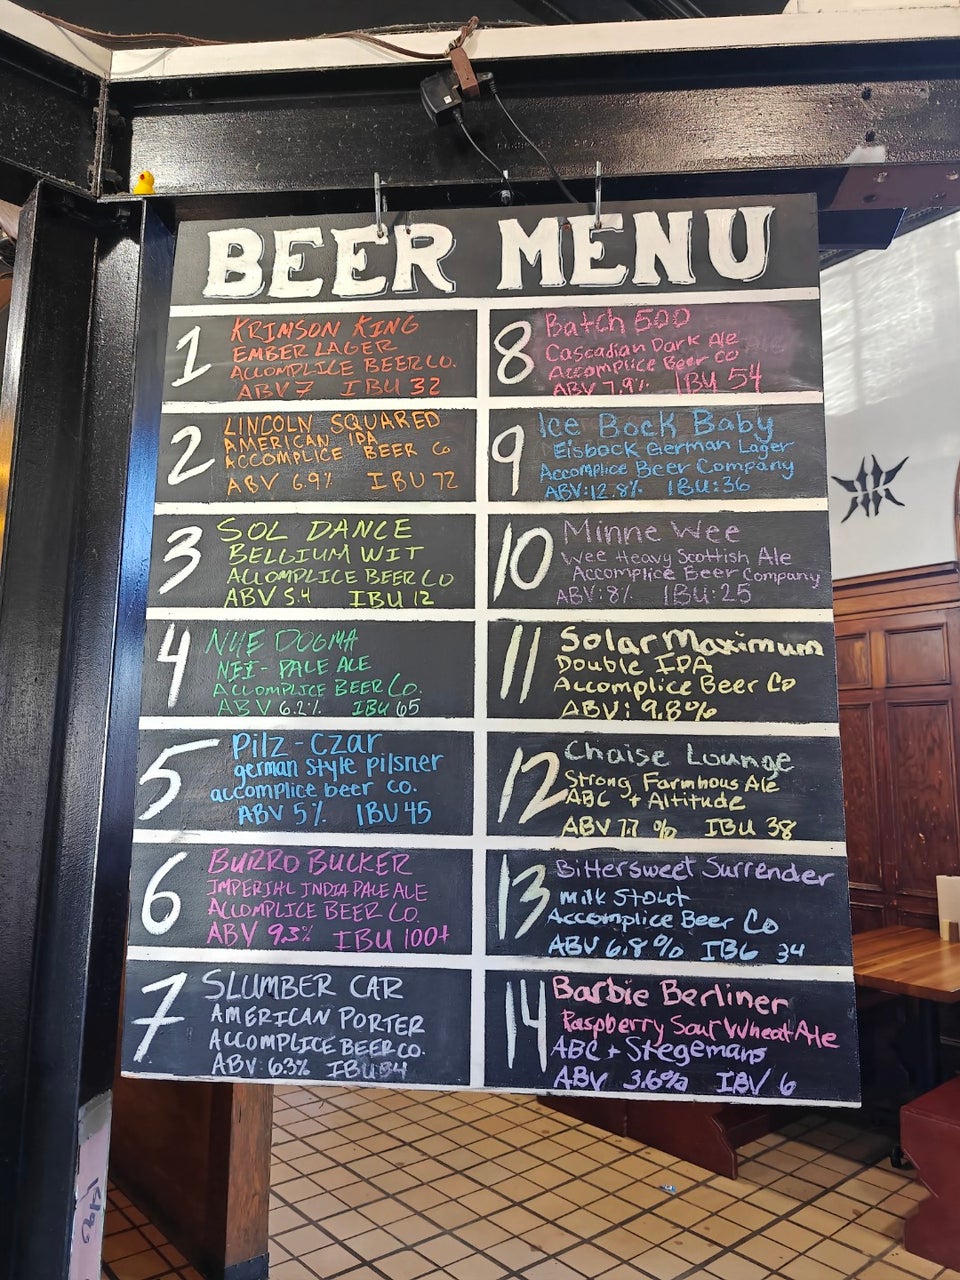 BEER MENU
1
KRIMSON KING
EMBER LAGER
ACCOMPLICE BEER CO.
ABV 7 IBU 32
2
LINCOLN SQUARED
AMERICAN IPA
ACCOMPLICE BEER Co
ABV 6.9% IBU 72
3
SOL DANCE
BELGIUM WIT
ACCOMPLICE BEER CO
ABV 5.4 IBU 12
4
NYE DOGMA
NEI-PALE ALE
ACCOMPLICE BEER Co.
ABV 6.2% IBU 65
5
Pilz-Czar
german style pilsner
accomplice beer co.
ABV 5% IBU 45
6
BURRO BUCKER
IMPERIAL INDIA PALE ALE
ACCOMPLICE BEER CO.
ABV 9.3% IBU 100+
7
SLUMBER CAR
AMERICAN PORTER
ACCOMPLICE BEER CO.
ABV 6.3% IBU 34
8
Batch 500
Cascadian Dark Ale
Accomplice Beer Co
ABV 7.9% IBU 54
9
Ice Bock Baby
Eisbock German Lager
Accomplice Beer Company
ABV:12.8% IBU:36
10
Minne Wee
Wee Heavy Scottish Ale
Accomplice Beer Company
ABV:8% IBU:25
11
Solar Maximum
Double IPA
Accomplice Beer Co
ABV: 9.8%
12
Chaise Lounge
Strong Farmhous Ale
ABC + Altitude
ABV 7.7 % IBU 38
13
Bittersweet Surrender
milk Stout
Accomplice Beer Co
ABV 6.8% IBU 34
14
Barbie Berliner
Raspberry Sour Wheat Ale
ABC + Stegemans
ABV 3.6% IBV 6